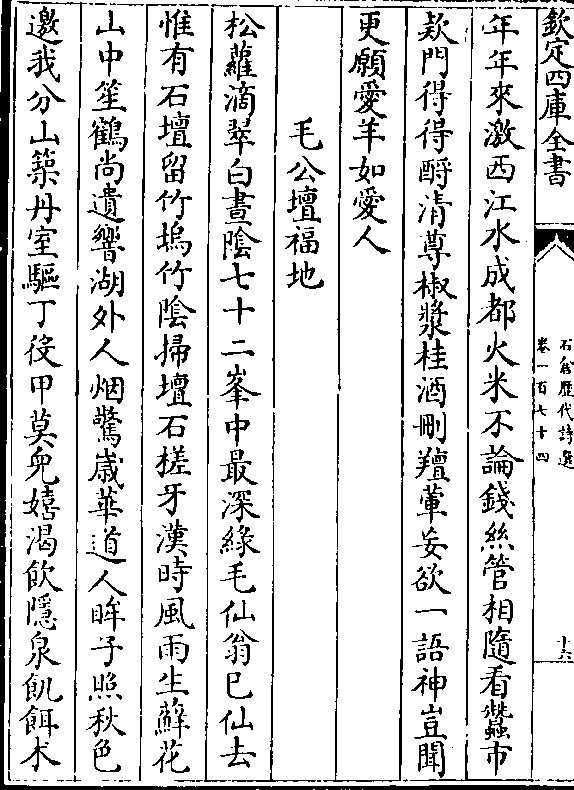 欽定四庫全書
石倉歷代詩選
卷一百七十四
十六
年年來激西江水成都火米不論錢絲管相隨看蠶市
欵門得得酹清尊椒漿桂酒刪羶葷妄欲一語神豈聞
更願愛羊如愛人
毛公壇福地
松蘿滴翠白晝陰七十二峯中最深綠毛仙翁已仙去
惟有石壇留竹塢竹陰掃壇石槎牙漢時風雨生蘚花
山中笙鶴尚遺響湖外人烟驚嵗華道人眸子照秋色
邀我分山築丹室驅丁役甲莫兒嬉渴飲隱泉飢餌朮